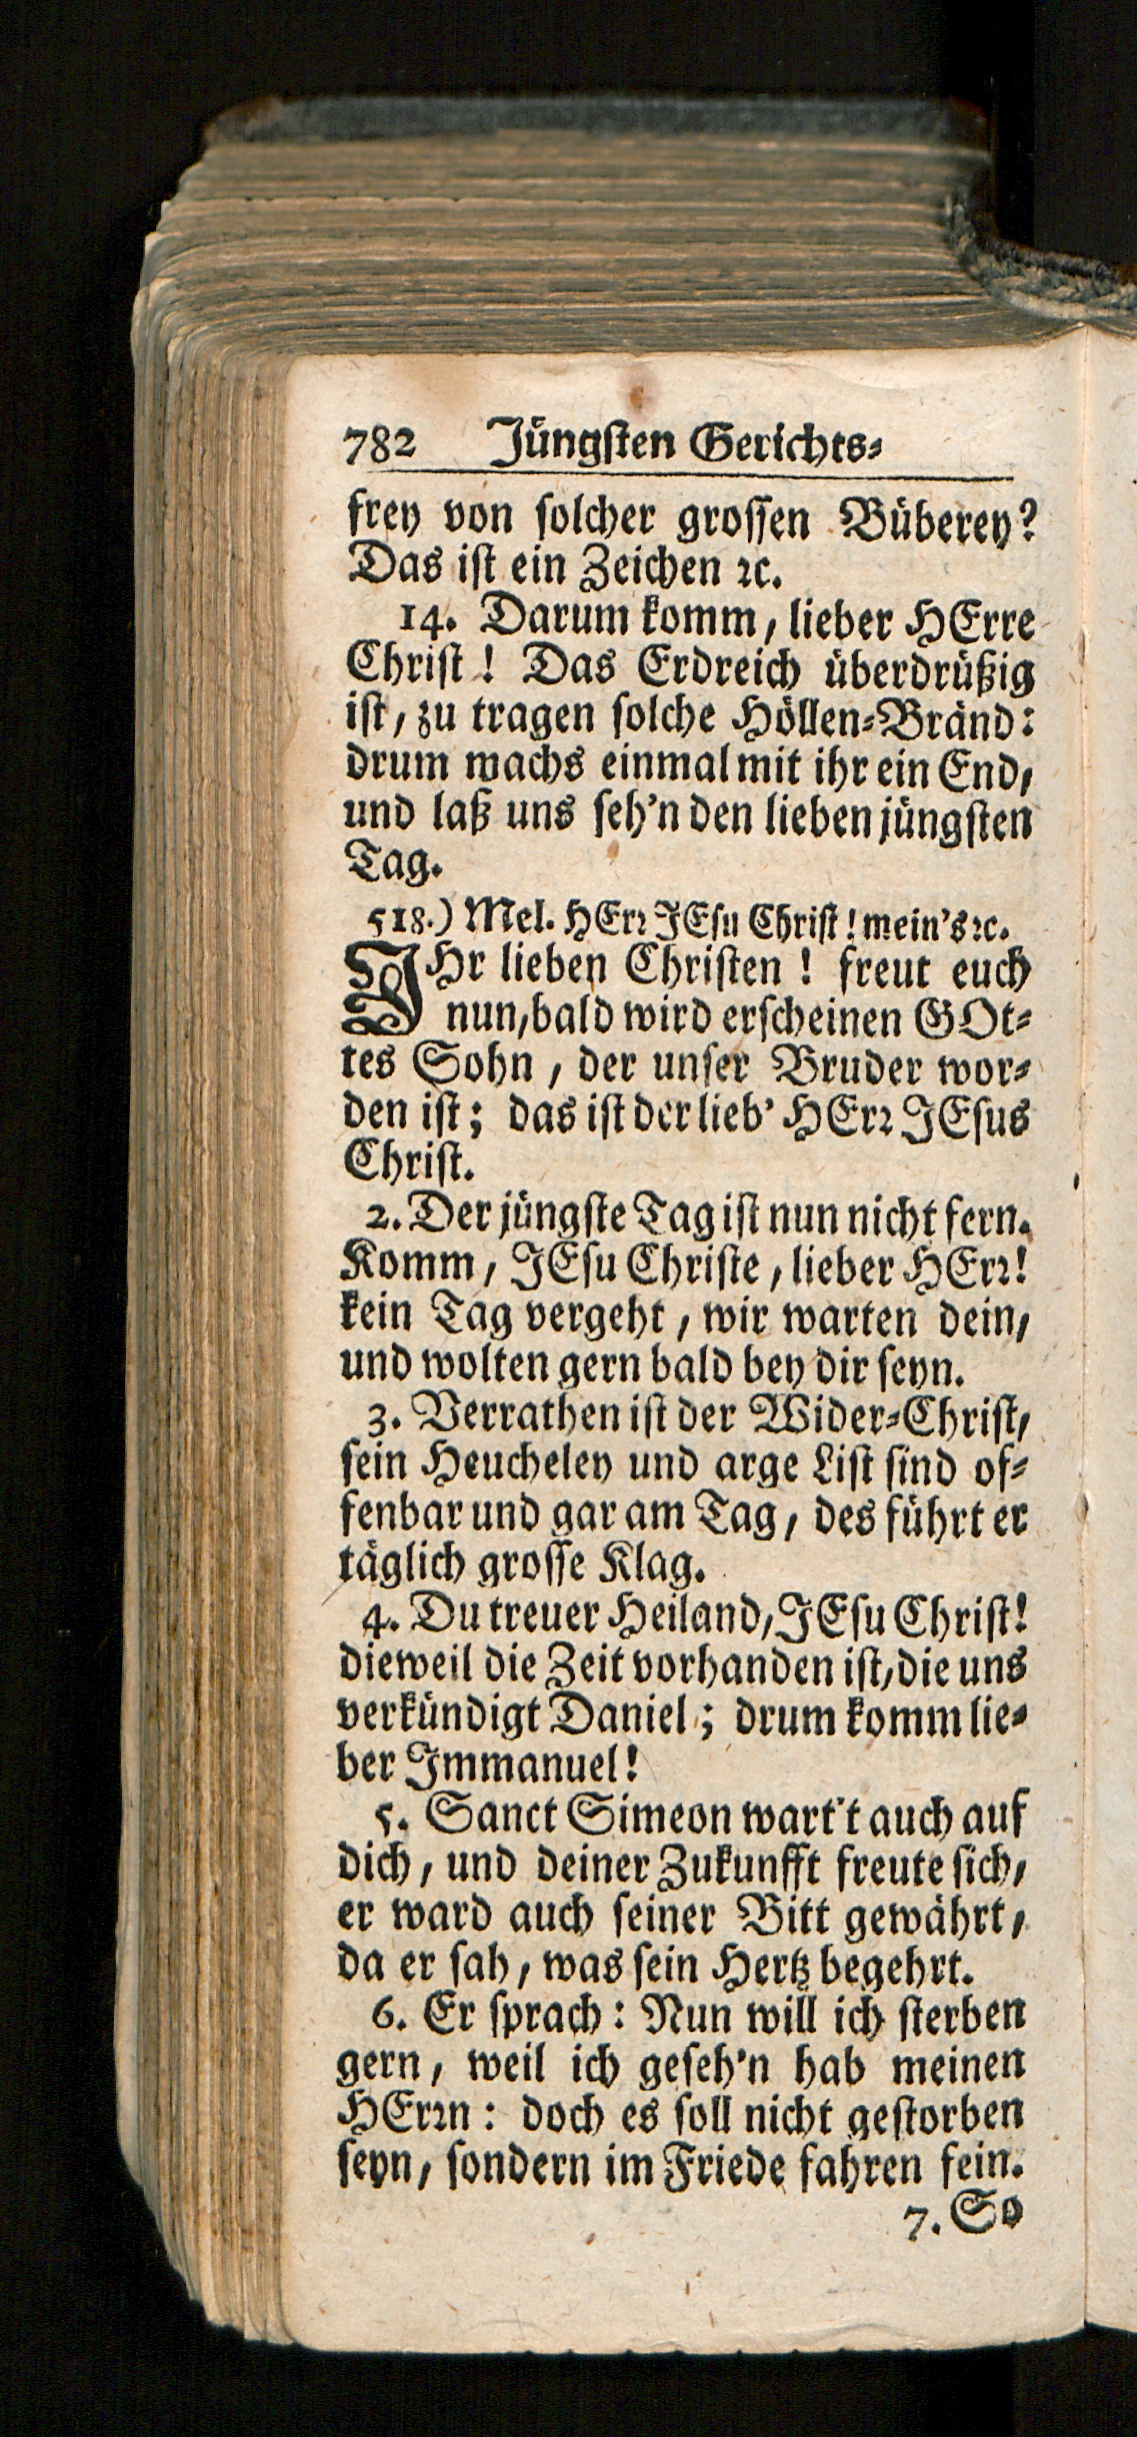 782 Jüngsten Gerichts-
frey von solcher grossen Büberey?
Das ist ein Zeichen ꝛc.
14. Darum komm, lieber HErre
Christ! Das Erdreich überdrüßig
ist, zu tragen solche Höllen-Bränd:
drum wachs einmal mit ihr ein End,
und laß uns seh'n den lieben jüngsten
Tag.
518.) Mel. HErꝛ JEsu Christ! mein's ꝛc.
IHr lieben Christen! freut euch
nun, bald wird erscheinen GOt-
tes Sohn, der unser Bruder wor-
den ist; das ist der lieb' HErꝛ JEsus
Christ.
2. Der jüngste Tag ist nun nicht fern.
Komm, JEsu Christe, lieber HErꝛ!
kein Tag vergeht, wir warten dein,
und wolten gern bald bey dir seyn.
3. Verrathen ist der Wider-Christ,
sein Heucheley und arge List sind of-
fenbar und gar am Tag, des führt er
täglich grosse Klag.
4. Du treuer Heiland, JEsu Christ!
dieweil die Zeit vorhanden ist, die uns
verkündigt Daniel; drum komm lie-
ber Immanuel!
5. Sanct Simeon wart't auch auf
dich, und deiner Zukunfft freute sich,
er ward auch seiner Bitt gewährt,
da er sah, was sein Hertz begehrt.
6. Er sprach: Nun will ich sterben
gern, weil ich geseh'n hab meinen
HErꝛn: doch es soll nicht gestorben
seyn, sondern im Friede fahren fein.
7. So